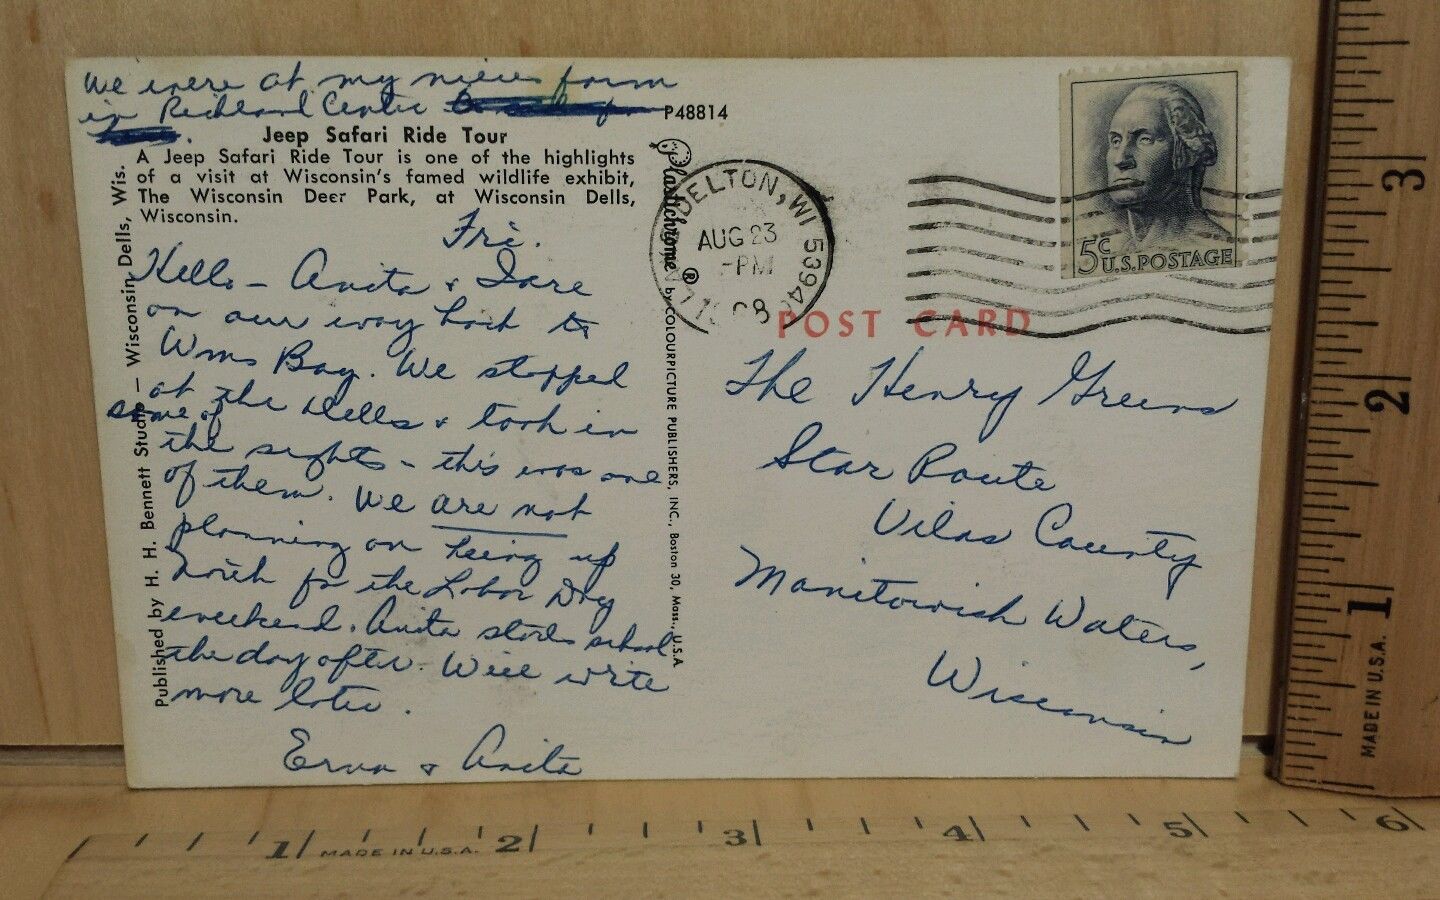 We were at my nieces farm
in Richland Center
P48814
Jeep Safari Ride Tour
A Jeep Safari Ride Tour is one of the highlights
of a visit at Wisconsin's famed wildlife exhibit,
The Wisconsin Deer Park, at Wisconsin Dells,
Wisconsin.
Fri.
Hello - Anita &
on our way back to
Wms Bay. We stopped
at the Dells & took in
some of
the sights - this was one
of them. We are not
planning on being up
North for the Labor Day
weekend. Anita starts school
the day after. Will write
more later.
& Anita
Published by H. H. Bennett Studio - Wisconsin Dells, Wis.
Plastichrome ® by COLOURPICTURE PUBLISHERS, INC., Boston 30, Mass., U.S.A.
DELTON, WI 5394
AUG 23
PM
5c
U.S. POSTAGE
POST CARD
The Henry Greens
Star Route
Vilas County
Manitowish Waters,
Wisconsin
3
2
1
MADE IN U.S.A.
1 MADE IN U.S.A. 2 3 4 5 6